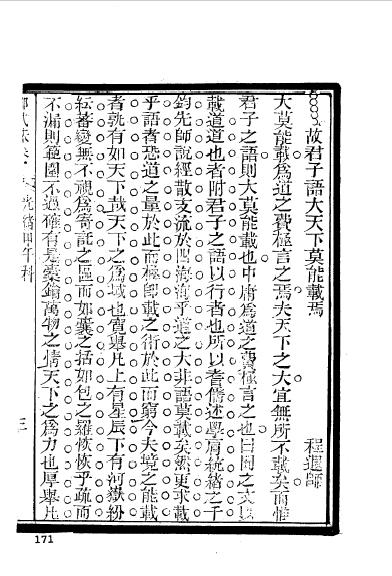 故君子語大天下莫能載焉
程選師
大莫能載爲道之費極言之焉夫天下之大宜無所不載矣而惟
君子之語則大莫能載也中庸爲道之費極言之也曰闇之文以
載道道也者附君子之語以行者也所以耆儒述學肩統緒之千
鈞先師說經散支流於四海海乎道之大非語莫載矣然更求載
乎語者恐道之量於此而極卽載之術於此而窮今夫境之能載
者孰有如天下哉天下之爲域也廣舉凡上有星辰下有河嶽紛
紜蕃變無不視爲寄託之區而如囊之括如包之羅恢恢乎疏而
不漏則範圍不過確有是橐鑰萬物之情天下之爲力也厚舉凡
光緒甲午科
三
171